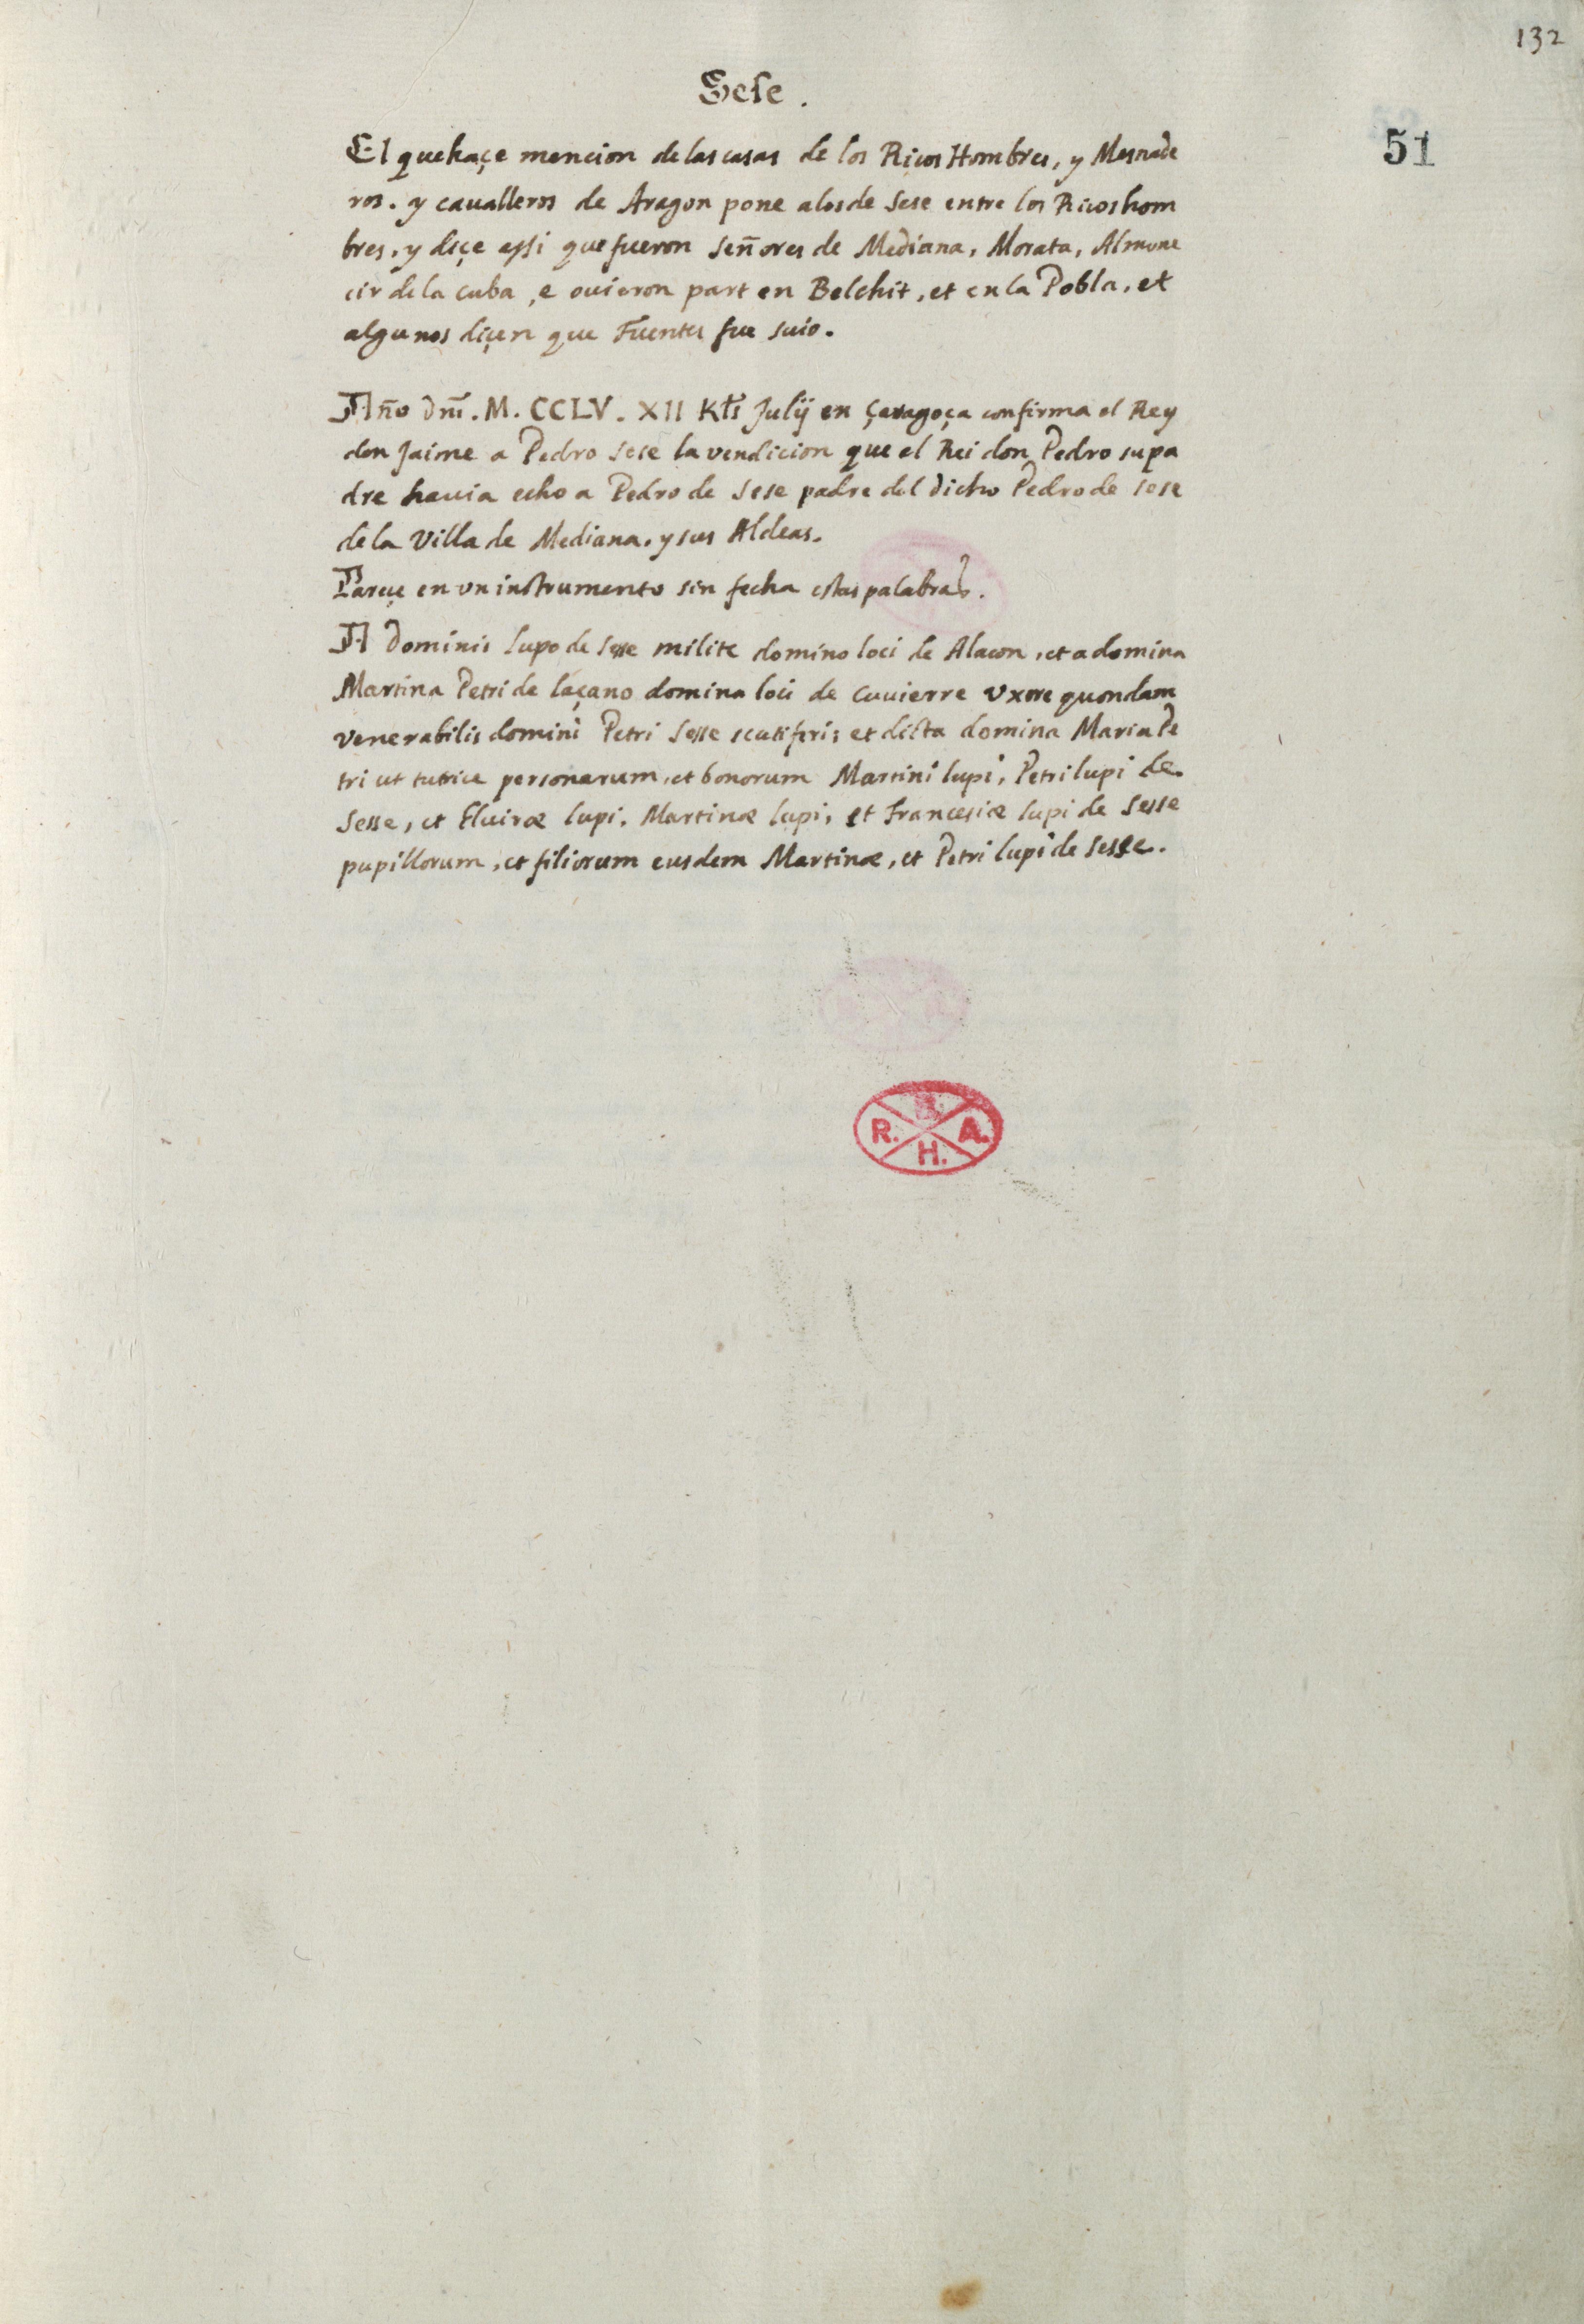 132
51
Sese.
El que haçe mencion de las casas de los Ricos Hombres, y Mesnade
ros. y cavalleros de Aragon pone a los de Sese entre los Ricos hom
bres, y diçe assi que fueron Señores de Mediana, Morata, Almone
cir de la cuba, e ouieron part en Belchit, et en la Pobla, et
algunos diçen que Fuentes fue suio.
Año Dnī. M. CCLV. XII Kłs Julij en Çaragoça confirma el Rey
don Jaime a Pedro Sese la vendicion que el Rei don Pedro su pa
dre hauia echo a Pedro de Sese padre del dicho Pedro de Sese
de la Villa de Mediana. y sus Aldeas.
Pareçe en vn instrumento sin fecha estas palabras.
A Dominis Lupo de Sesse milite domino loci de Alacon, et a domina
Martina Petri de laçano domina loci de Cuuierre Vxore quondam
venerabilis domini Petri Sesse scutiferi; et dicta domina Maria Pe
tri ut tutrice personarum, et bonorum Martini lupi, Petri lupi de
Sesse, et Eluiræ lupi, Martinæ lupi, et Francesiæ lupi de Sesse
pupillorum, et filiorum eiusdem Martinæ, et Petri lupi de Sesse.
B.
R. A.
H.